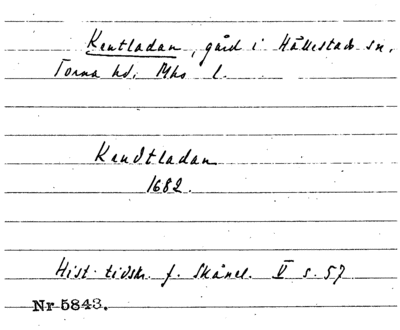 Kentladan, gård i Hällestads sn.
Torna hd. Mhs l.
Kendtladan
1682.
Hist. tidskr. f. Skånel. V s. 57
Nr 5843.